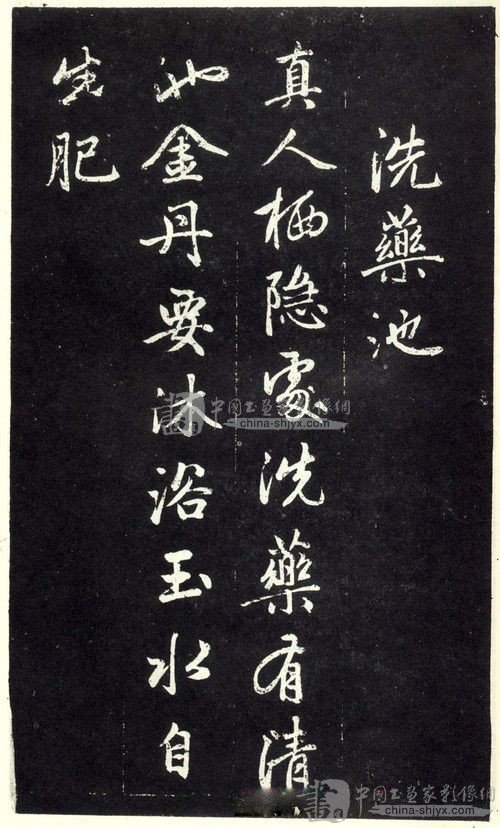 洗藥池
真人栖隐處洗藥有清
池金丹要沐浴玉水自
生肥
中國书画家影像網
china-shjyx.com
中國书画家影像網
china-shjyx.com